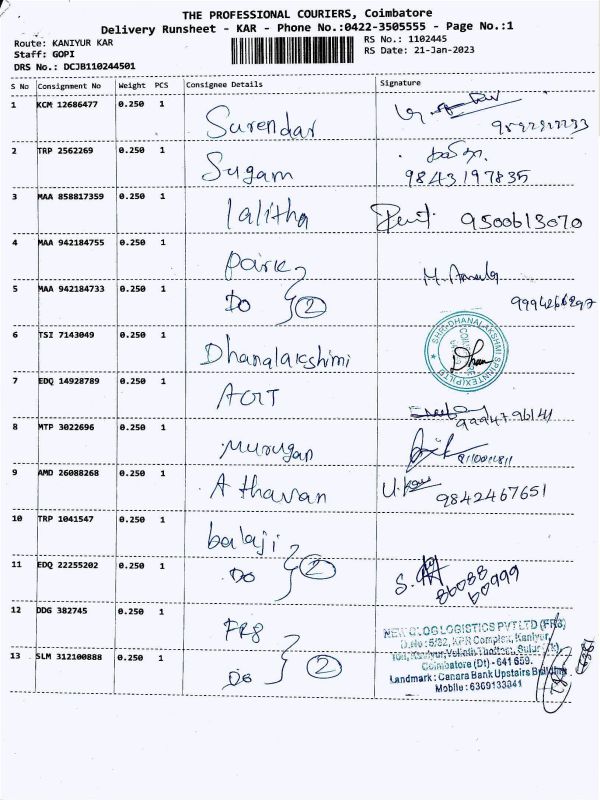 THE PROFESSIONAL COURIERS, Coimbatore
Delivery Runsheet - KAR - Phone No.:0422-3505555 - Page No.:1
Route: KANIYUR KAR
Staff: GOPI
DRS No.: DCJB110244501
RS No.: 1102445
RS Date: 21-Jan-2023
S No Consignment No Weight PCS Consignee Details Signature
1 KCM 12686477 0.250 1 Surendar
2 TRP 2562269 0.250 1 Sugam 9843197835
3 MAA 858817359 0.250 1 lalitha 9500613070
4 MAA 942184755 0.250 1 park
5 MAA 942184733 0.250 1 DO 2
6 TSI 7143049 0.250 1 Dhanalakshimi SHRI DHANALAKSHMI SPINNTEX(P)LTD Dhan
7 EDQ 14928789 0.250 1
8 MTP 3022696 0.250 1 Murugan
9 AMD 26088268 0.250 1 Athavan 9842467651
10 TRP 1041547 0.250 1 balaji
11 EDQ 22255202 0.250 1 DO 2 86088 60999
12 DDG 382745 0.250 1 FR8
13 SLM 312100888 0.250 1 DO 2
LOGISTICS PVT LTD (FR8)
KPR Complex, Kaniyur,
Coimbatore (Dt) - 641 659.
Landmark : Canara Bank Upstairs Building
Mobile : 6369133341